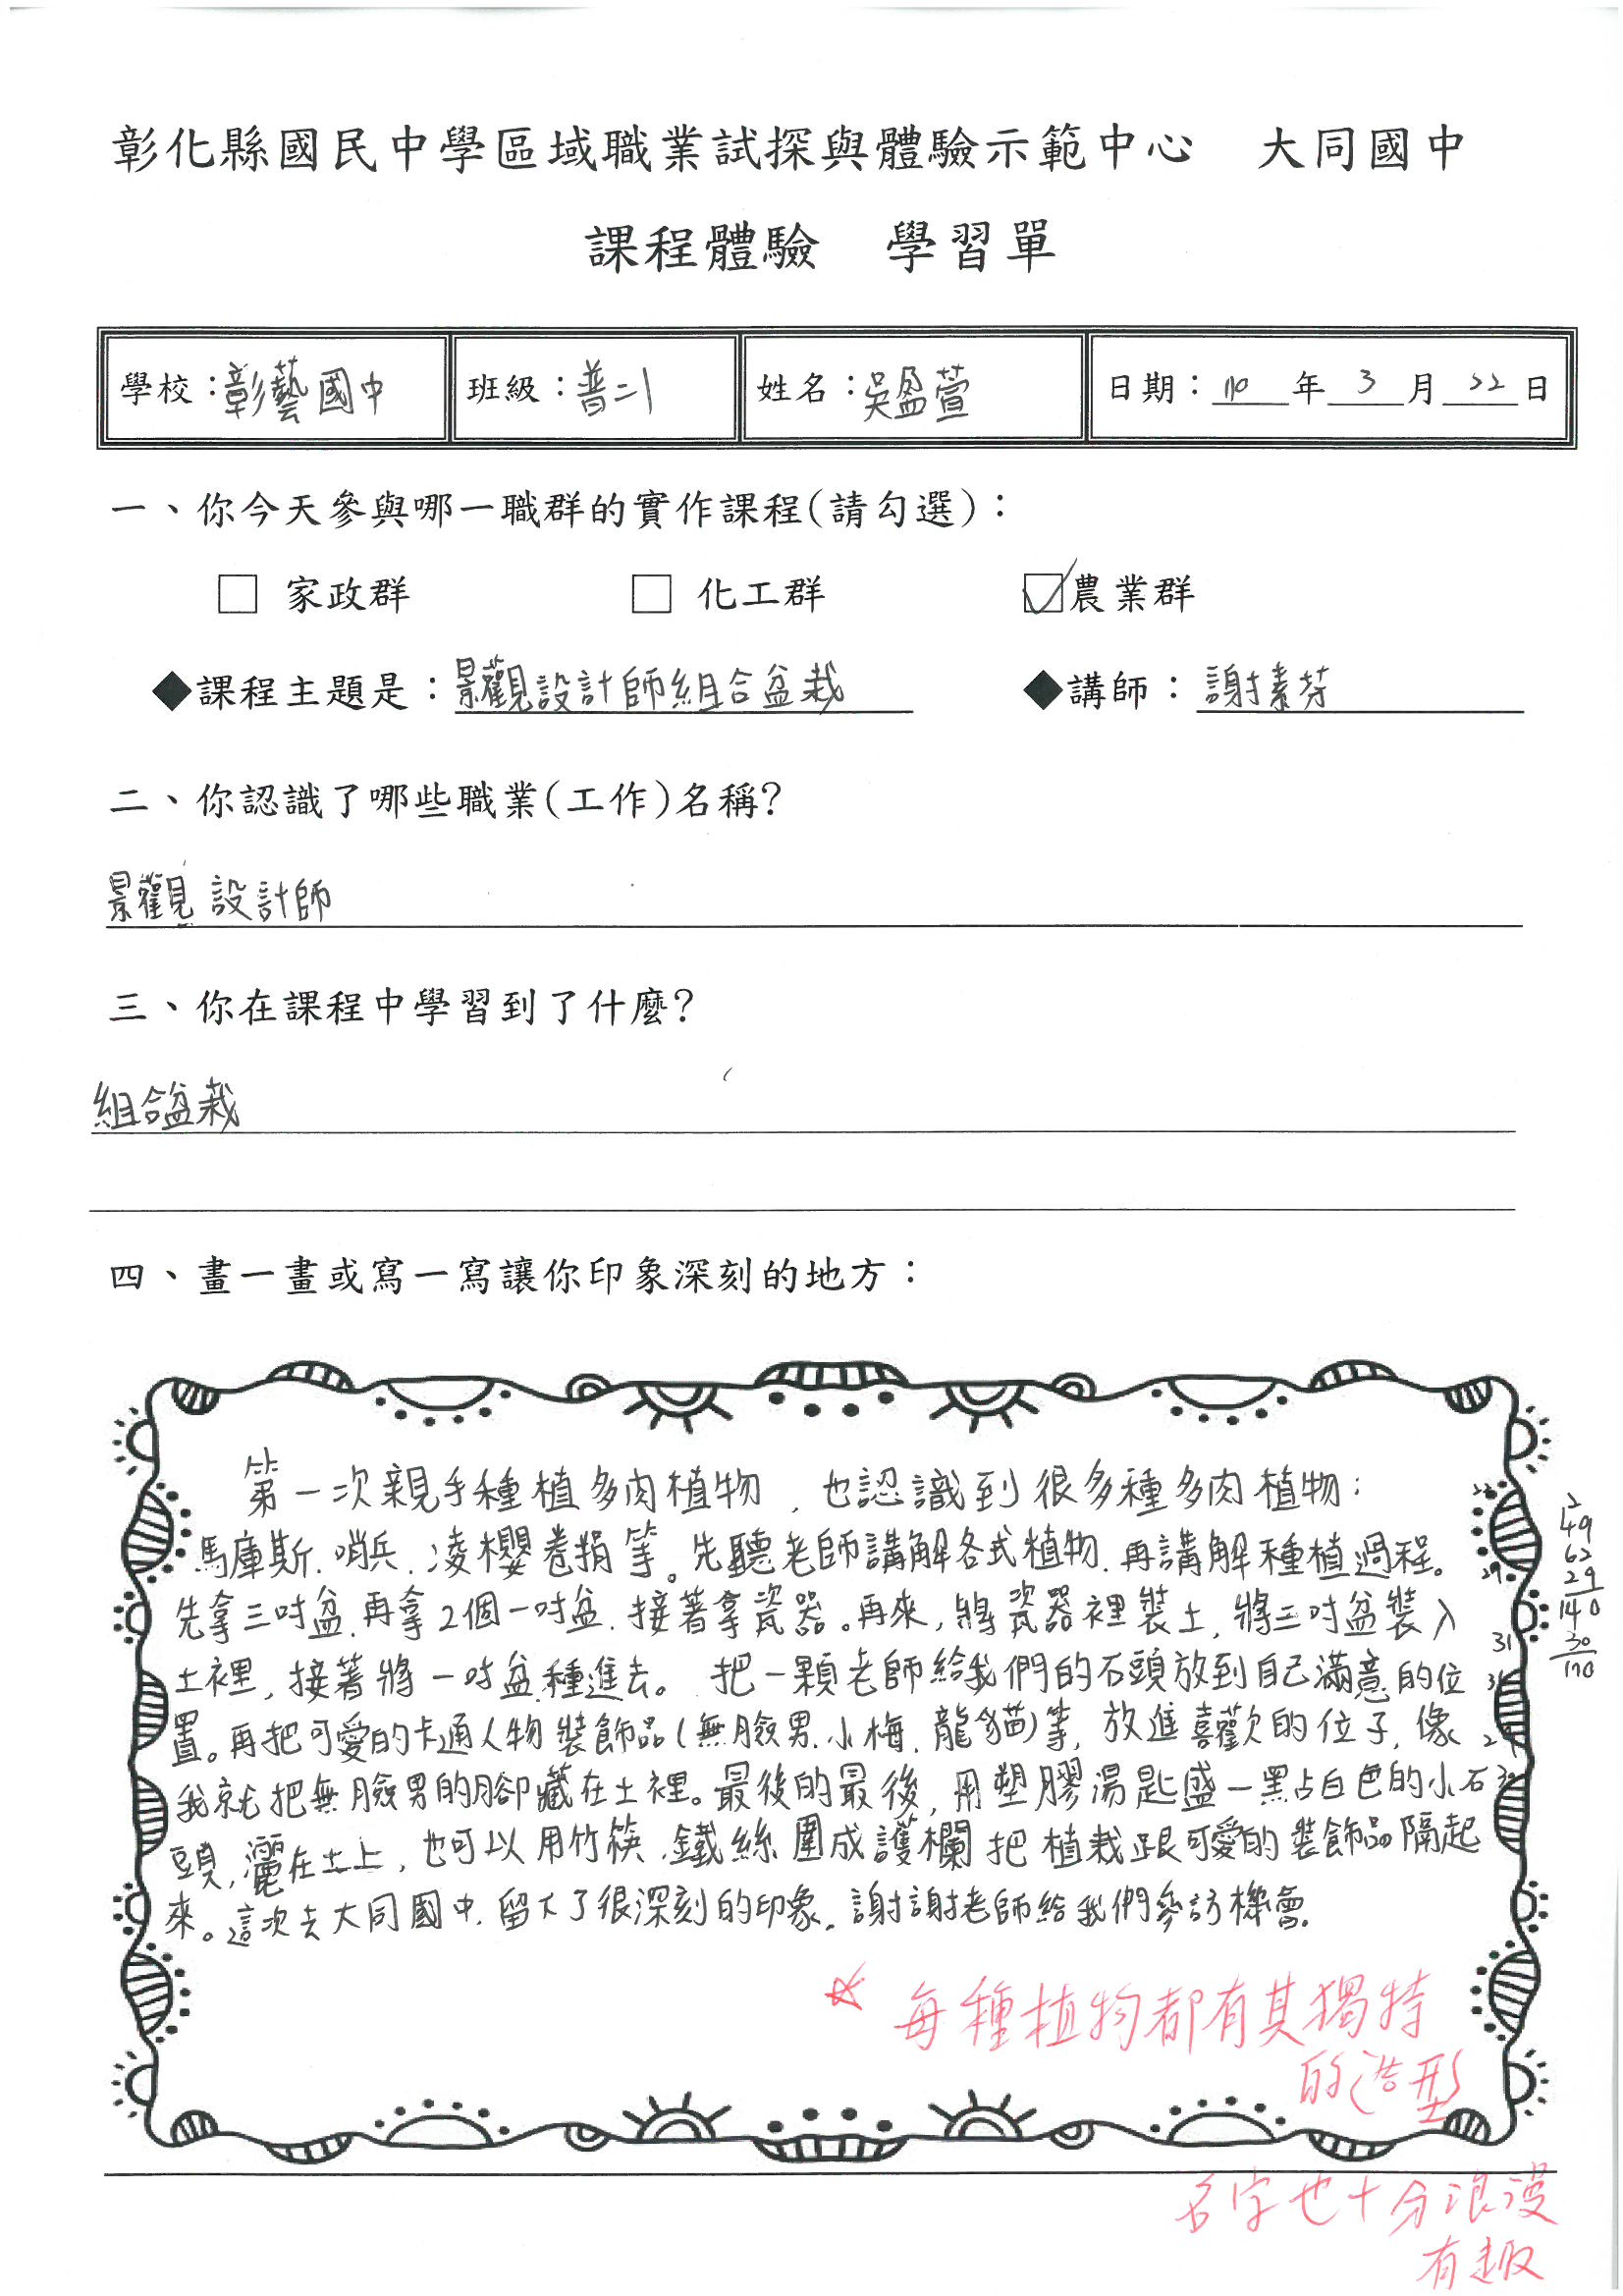 彰化縣國民中學區域職業試探與體驗示範中心　大同國中
課程體驗　學習單
學校：彰藝國中　班級：普二1　姓名：吳盈萱　日期：110年3月22日
一、你今天參與哪一職群的實作課程(請勾選)：
□ 家政群　□ 化工群　☑農業群
◆課程主題是：景觀設計師組合盆栽　◆講師：謝素芬
二、你認識了哪些職業(工作)名稱?
景觀設計師
三、你在課程中學習到了什麼?
組合盆栽
四、畫一畫或寫一寫讓你印象深刻的地方：
第一次親手種植多肉植物，也認識到很多種多肉植物：
馬庫斯、哨兵、凌櫻卷捐等。先聽老師講解各式植物，再講解種植過程。
先拿三吋盆，再拿2個一吋盆，接著拿瓷器。再來，將瓷器裡裝土，將三吋盆裝入
土裡，接著將一吋盆種進去。把一顆老師給我們的石頭放到自己滿意的位
置。再把可愛的卡通人物裝飾品(無臉男、小梅、龍貓)等，放進喜歡的位子，像
我就把無臉男的腳藏在土裡。最後的最後，用塑膠湯匙盛一點白色的小石
頭，灑在土上，也可以用竹筷、鐵絲圍成護欄把植栽跟可愛的裝飾品隔起
來。這次去大同國中，留下了很深刻的印象。謝謝老師給我們參訪機會。
31
49
62
29
140
30
170
☆ 每種植物都有其獨特
的造型
名字也十分浪漫
有趣